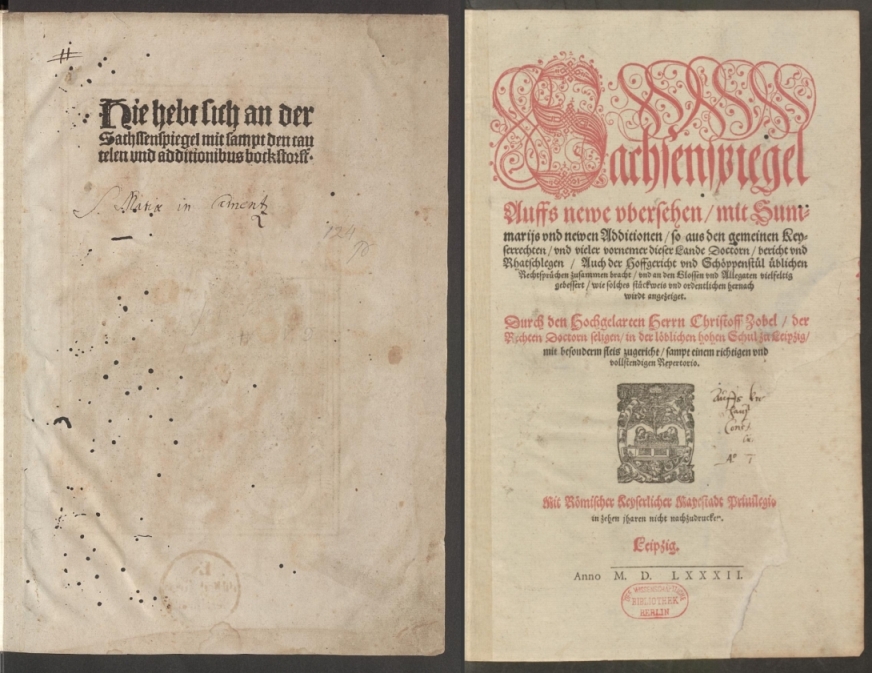 Hie hebt sich an der
Sachssenspiegel mit sampt den cau
telen vnd additionibus bockstorff.
Maria in
124
Sachsenspiegel
Auffs newe vbersehen / mit Sum⸗
marijs vnd newen Additionen / so aus den gemeinen Key⸗
serrechten / vnd vieler vornemer dieser Lande Doctorn / bericht vnd
Rhatschlegen / Auch der Hoffgericht vnd Schöppenstül üblichen
Rechtsprüchen zusammen bracht / vnd an den Glossen vnd Allegaten vielfeltig
gebessert / wie solches stückweis vnd ordentlichen hernach
wirdt angezeiget.
Durch den Hochgelarten Herrn Christoff Zobel / der
Rechten Doctorn seligen / in der löblichen hohen Schul zu Leipzig /
mit besonderm fleis zugericht / sampt einem richtigen vnd
vollstendigen Repertorio.
Mit Römischer Keyserlicher Mayestadt Priuilegio
in zehen jharen nicht nachzudrucken.
Leipzig.
Anno M. D. LXXXII.
BIBLIOTHEK
BERLIN